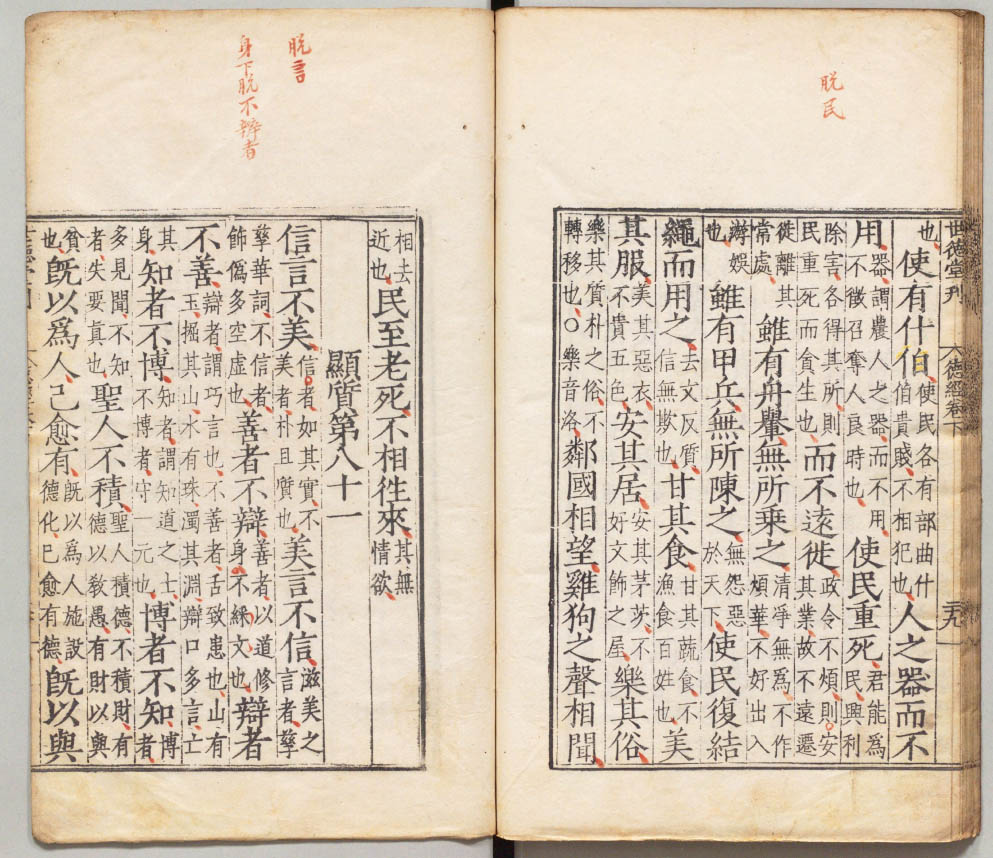 脱民
世德堂刊
德經卷下
也使有什伯使民各有部曲什伯貴賤不相犯也人之器而不
用器謂農人之器而不用不徵召奪人良時也使民重死君能爲民興利
除害各得其所則民重死而貪生也而不遠徙政令不煩則安其業故不遠遷
徙離其常處雖有舟轝無所乘之清淨無爲不作煩華不好出入
遊娛也雖有甲兵無所陳之無怨惡於天下使民復結
繩而用之去文反質信無欺也甘其食甘其蔬食不漁食百姓也美
其服美其惡衣不貴五色安其居安其茅茨不好文飾之屋樂其俗
樂其質朴之俗不轉移也○樂音洛鄰國相望雞狗之聲相聞
脱言
身下脱不辯者
相去近也民至老死不相徃來其無情欲
顯質第八十一
信言不美信者如其實不美者朴且質也美言不信滋美之言者孳
孳華詞不信者飾僞多空虛也善者不辯善者以道修身不綵文也辯者
不善辯者謂巧言也不善者舌致患也山有玉掘其山水有珠濁其淵辯口多言亡
其身知者不博知者謂知道之士不博者守一元也博者不知博者
多見聞不知者失要真也聖人不積聖人積德不積財有德以敎愚有財以與
貧也旣以爲人己愈有旣以爲人施設德化己愈有德旣以與